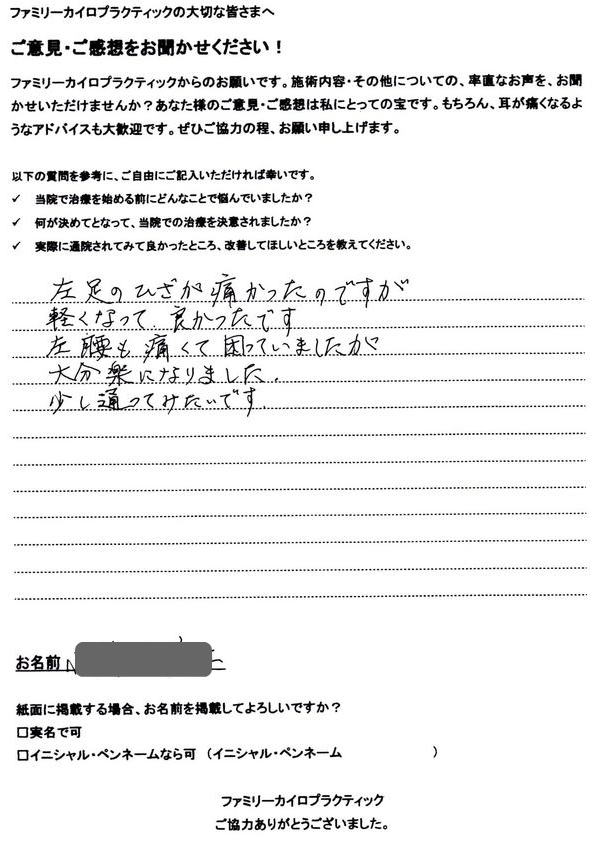 ファミリーカイロプラクティックの大切な皆さまへ
ご意見・ご感想をお聞かせください！
ファミリーカイロプラクティックからのお願いです。施術内容・その他についての、率直なお声を、お聞
かせいただけませんか？あなた様のご意見・ご感想は私にとっての宝です。もちろん、耳が痛くなるよ
うなアドバイスも大歓迎です。ぜひご協力の程、お願い申し上げます。
以下の質問を参考に、ご自由にご記入いただければ幸いです。
✓ 当院で治療を始める前にどんなことで悩んでいましたか？
✓ 何が決めてとなって、当院での治療を決意されましたか？
✓ 実際に通院されてみて良かったところ、改善してほしいところを教えてください。
左足のひざが痛かったのですが
軽くなって良かったです
左腰も痛くて困っていましたが
大分楽になりました.
少し通ってみたいです.
お名前
紙面に掲載する場合、お名前を掲載してよろしいですか？
□実名で可
□イニシャル・ペンネームなら可 （イニシャル・ペンネーム　　　　　　　）
ファミリーカイロプラクティック
ご協力ありがとうございました。